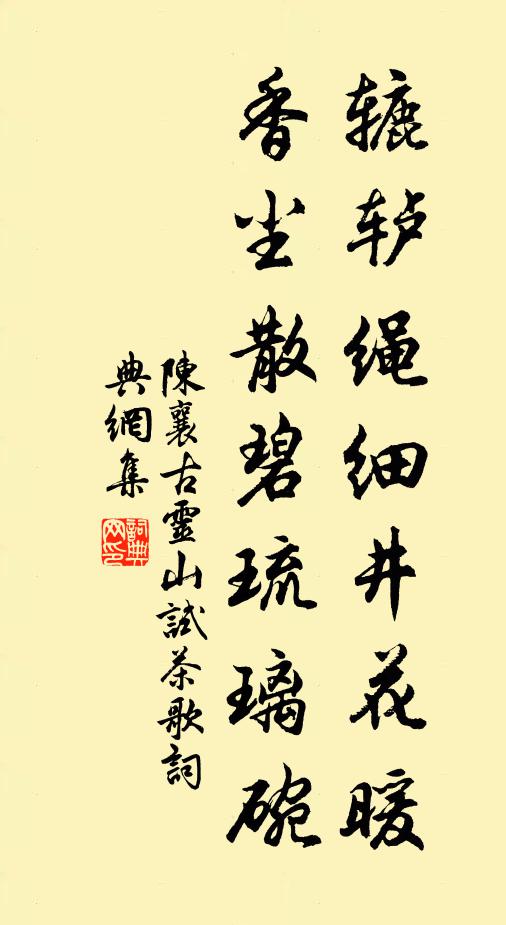 辘轳绳细井花暖
香尘散碧琉璃碗
陳襄古靈山試茶歌詞
典網集
詞典網印